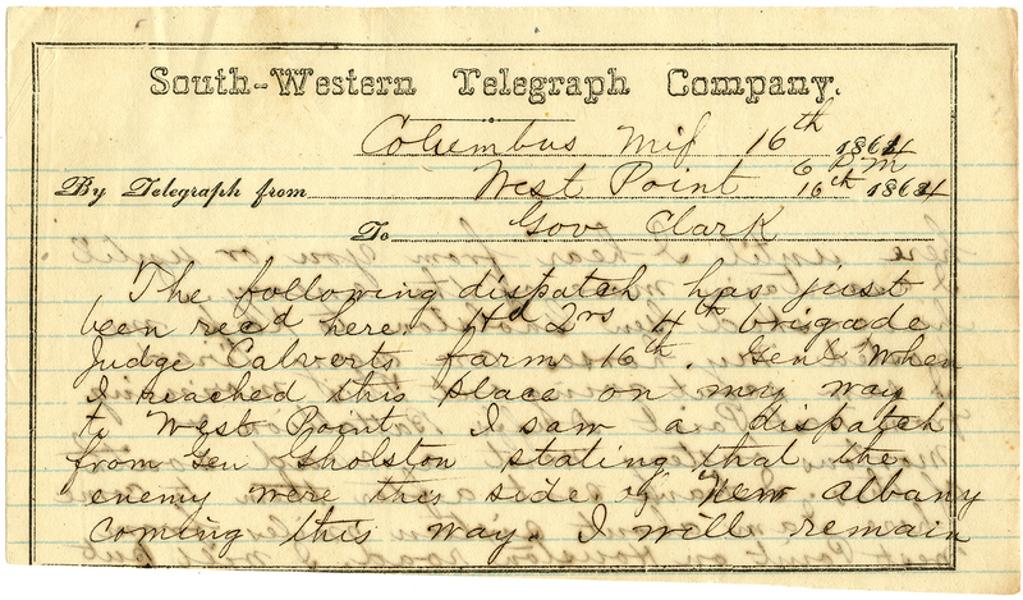 South-Western Telegraph Company.
Columbus Mis 16th 1864
6 Pm
By Telegraph from West Point 16th 1864
To Gov Clark
The following dispatch has just
been recd here. Hd 2rs 4th brigade
Judge Calverts farm 16th. Genl When
I reached this place on my way
to West Point I saw a dispatch
from Gen Gholston stating that the
enemy were this side of New Albany
coming this way. I will remain